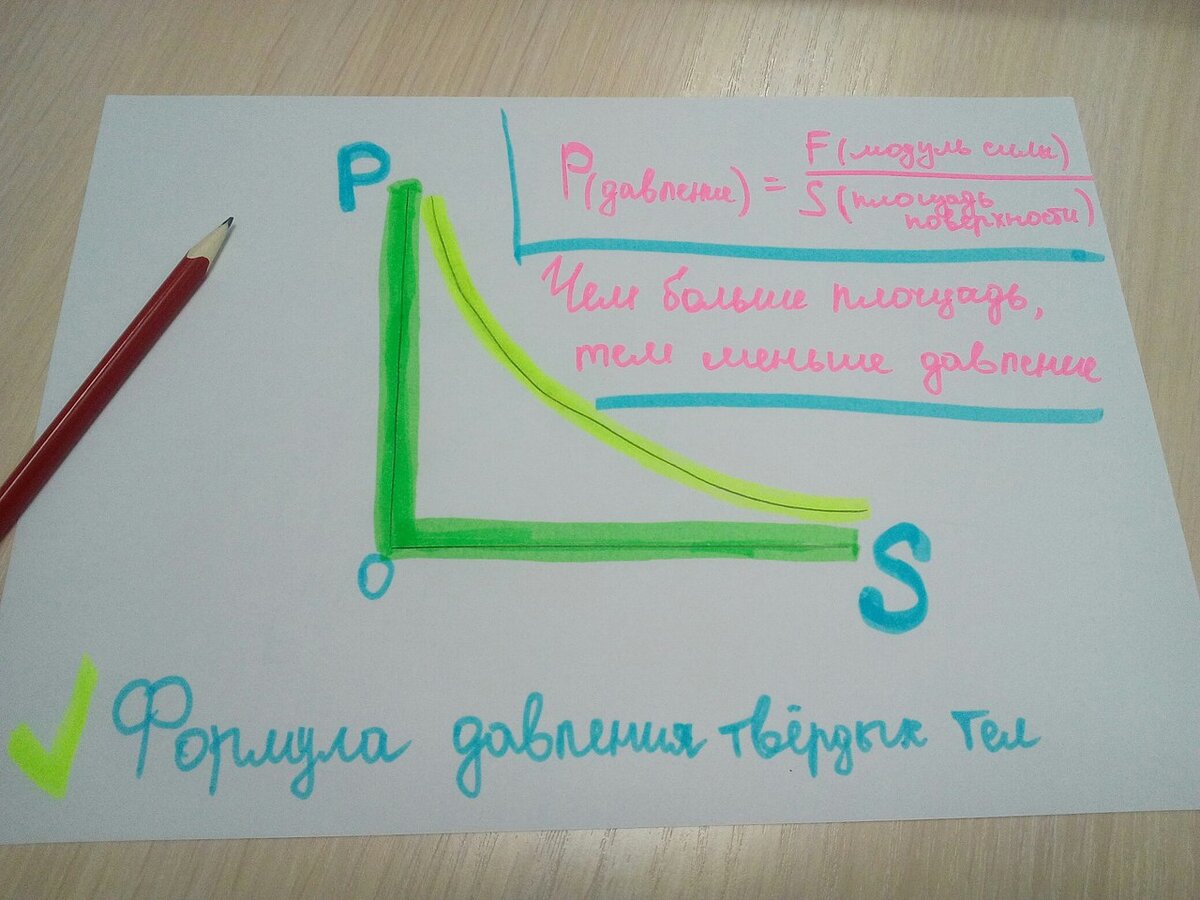 P
P(давление) = F(модуль силы)
S(площадь
поверхности)
Чем больше площадь,
тем меньше давление
O
S
Формула давления твёрдых тел